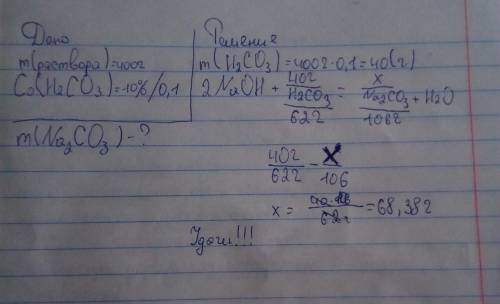 Дано
m(раствора)=400г
C₀(H₂CO₃)=10%/0,1
m(Na₂CO₃)-?
Решение
m(H₂CO₃)=400г·0,1=40(г)
40г x
2NaOH + H₂CO₃ = Na₂CO₃ + H₂O
62г 106г
40г = x
62г 106
x = 40·106 / 62г = 68,38г
Удачи!!!